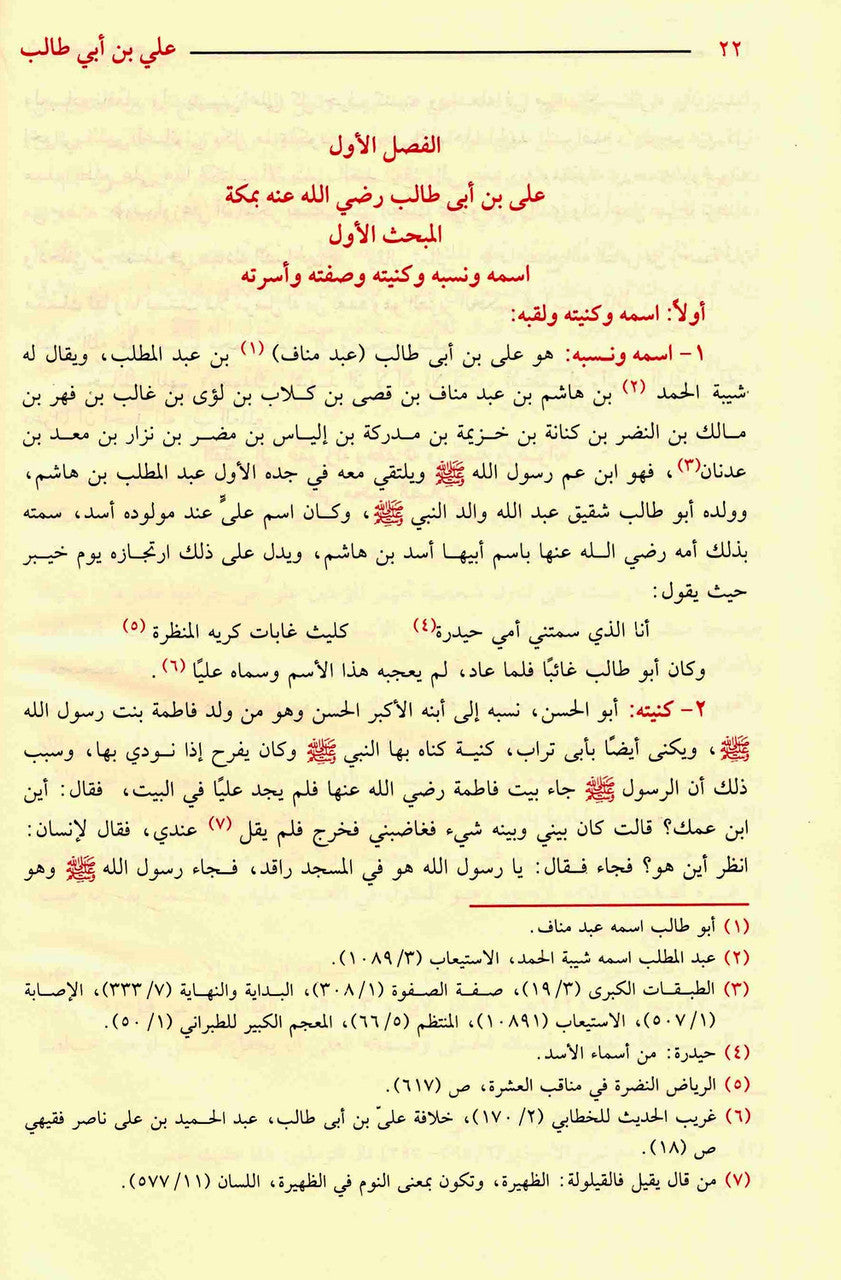 ٢٢ علي بن أبي طالب
الفصل الأول
على بن أبى طالب رضي الله عنه بمكة
المبحث الأول
اسمه ونسبه وكنيته وصفته وأسرته
أولاً: اسمه وكنيته ولقبه:
١- اسمه ونسبه: هو على بن أبى طالب (عبد مناف) (١) بن عبد المطلب، ويقال له
شيبة الحمد (٢) بن هاشم بن عبد مناف بن قصى بن كلاب بن لؤى بن غالب بن فهر بن
مالك بن النضر بن كنانة بن خزيمة بن مدركة بن إلياس بن مضر بن نزار بن معد بن
عدنان(٣)، فهو ابن عم رسول الله ﷺ ويلتقي معه في جده الأول عبد المطلب بن هاشم،
وولده أبو طالب شقيق عبد الله والد النبي ﷺ، وكان اسم علىٍّ عند مولوده أسد، سمته
بذلك أمه رضي الله عنها باسم أبيها أسد بن هاشم، ويدل على ذلك ارتجازه يوم خيبر
حيث يقول:
أنا الذي سمتني أمي حيدرة(٤) كليث غابات كريه المنظرة (٥)
وكان أبو طالب غائبًا فلما عاد، لم يعجبه هذا الأسم وسماه عليًا (٦).
٢- كنيته: أبو الحسن، نسبه إلى أبنه الأكبر الحسن وهو من ولد فاطمة بنت رسول الله
ﷺ، ويكنى أيضًا بأبى تراب، كنية كناه بها النبي ﷺ وكان يفرح إذا نودي بها، وسبب
ذلك أن الرسول ﷺ جاء بيت فاطمة رضي الله عنها فلم يجد عليًا في البيت، فقال: أين
ابن عمك؟ قالت كان بيني وبينه شيء فغاضبني فخرج فلم يقل (٧) عندي، فقال لإنسان:
انظر أين هو؟ فجاء فقال: يا رسول الله هو في المسجد راقد، فجاء رسول الله ﷺ وهو
(١) أبو طالب اسمه عبد مناف.
(٢) عبد المطلب اسمه شيبة الحمد، الاستيعاب (٣/ ١٠٨٩).
(٣) الطبقات الكبرى (٣/ ١٩)، صفة الصفوة (١/ ٣٠٨)، البداية والنهاية (٧/ ٣٣٣)، الإصابة
(١/ ٥٠٧)، الاستيعاب (١٠٨٩١)، المنتظم (٥/ ٦٦)، المعجم الكبير للطبراني (١/ ٥٠).
(٤) حيدرة: من أسماء الأسد.
(٥) الرياض النضرة في مناقب العشرة، ص (٦١٧).
(٦) غريب الحديث للخطابي (٢/ ١٧٠)، خلافة علىّ بن أبى طالب، عبد الحميد بن على ناصر فقيهي
ص (١٨).
(٧) من قال يقيل فالقيلولة: الظهيرة، وتكون بمعنى النوم في الظهيرة، اللسان (١١/ ٥٧٧).